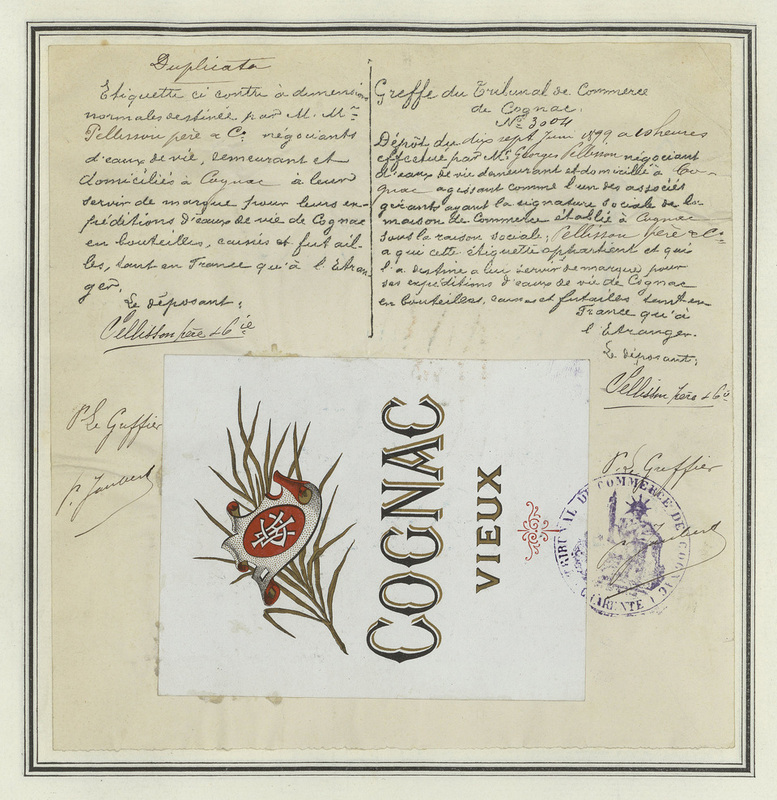 Duplicata
Etiquette ci contre à dimensions
normales destinée par M. Mrs
Pellisson père & Co négociants
d'eaux de vie, demeurant et
domiciliés à Cognac à leur
servir de marque pour leurs ex-
péditions d'eaux de vie de Cognac
en bouteilles, caisses et futail-
les, tant en France qu'à l'Etran-
ger.
Le déposant:
Pellisson père & Cie
Pr Le Greffier
Greffe du Tribunal de Commerce
de Cognac.
No 3004
Dépôt du dix sept Juin 1899 à 10 heures
effectué par Mr Georges Pellisson négociant
d'eaux de vie demeurant et domicilié à Cog-
nac agissant comme l'un des associés
gérants ayant la signature sociale de la
maison de Commerce établie à Cognac
sous la raison sociale: Pellisson père & Co
à qui cette étiquette appartient et qui
l'a destine à lui servir de marque pour
ses expéditions d'eaux de vie de Cognac
en bouteilles, caisses et futailles tant en
France qu'à
l'Etranger.
Le déposant:
Pellisson père & Cie
Pr Le Greffier
COGNAC
VIEUX
TRIBUNAL DE COMMERCE DE COGNAC
CHARENTE